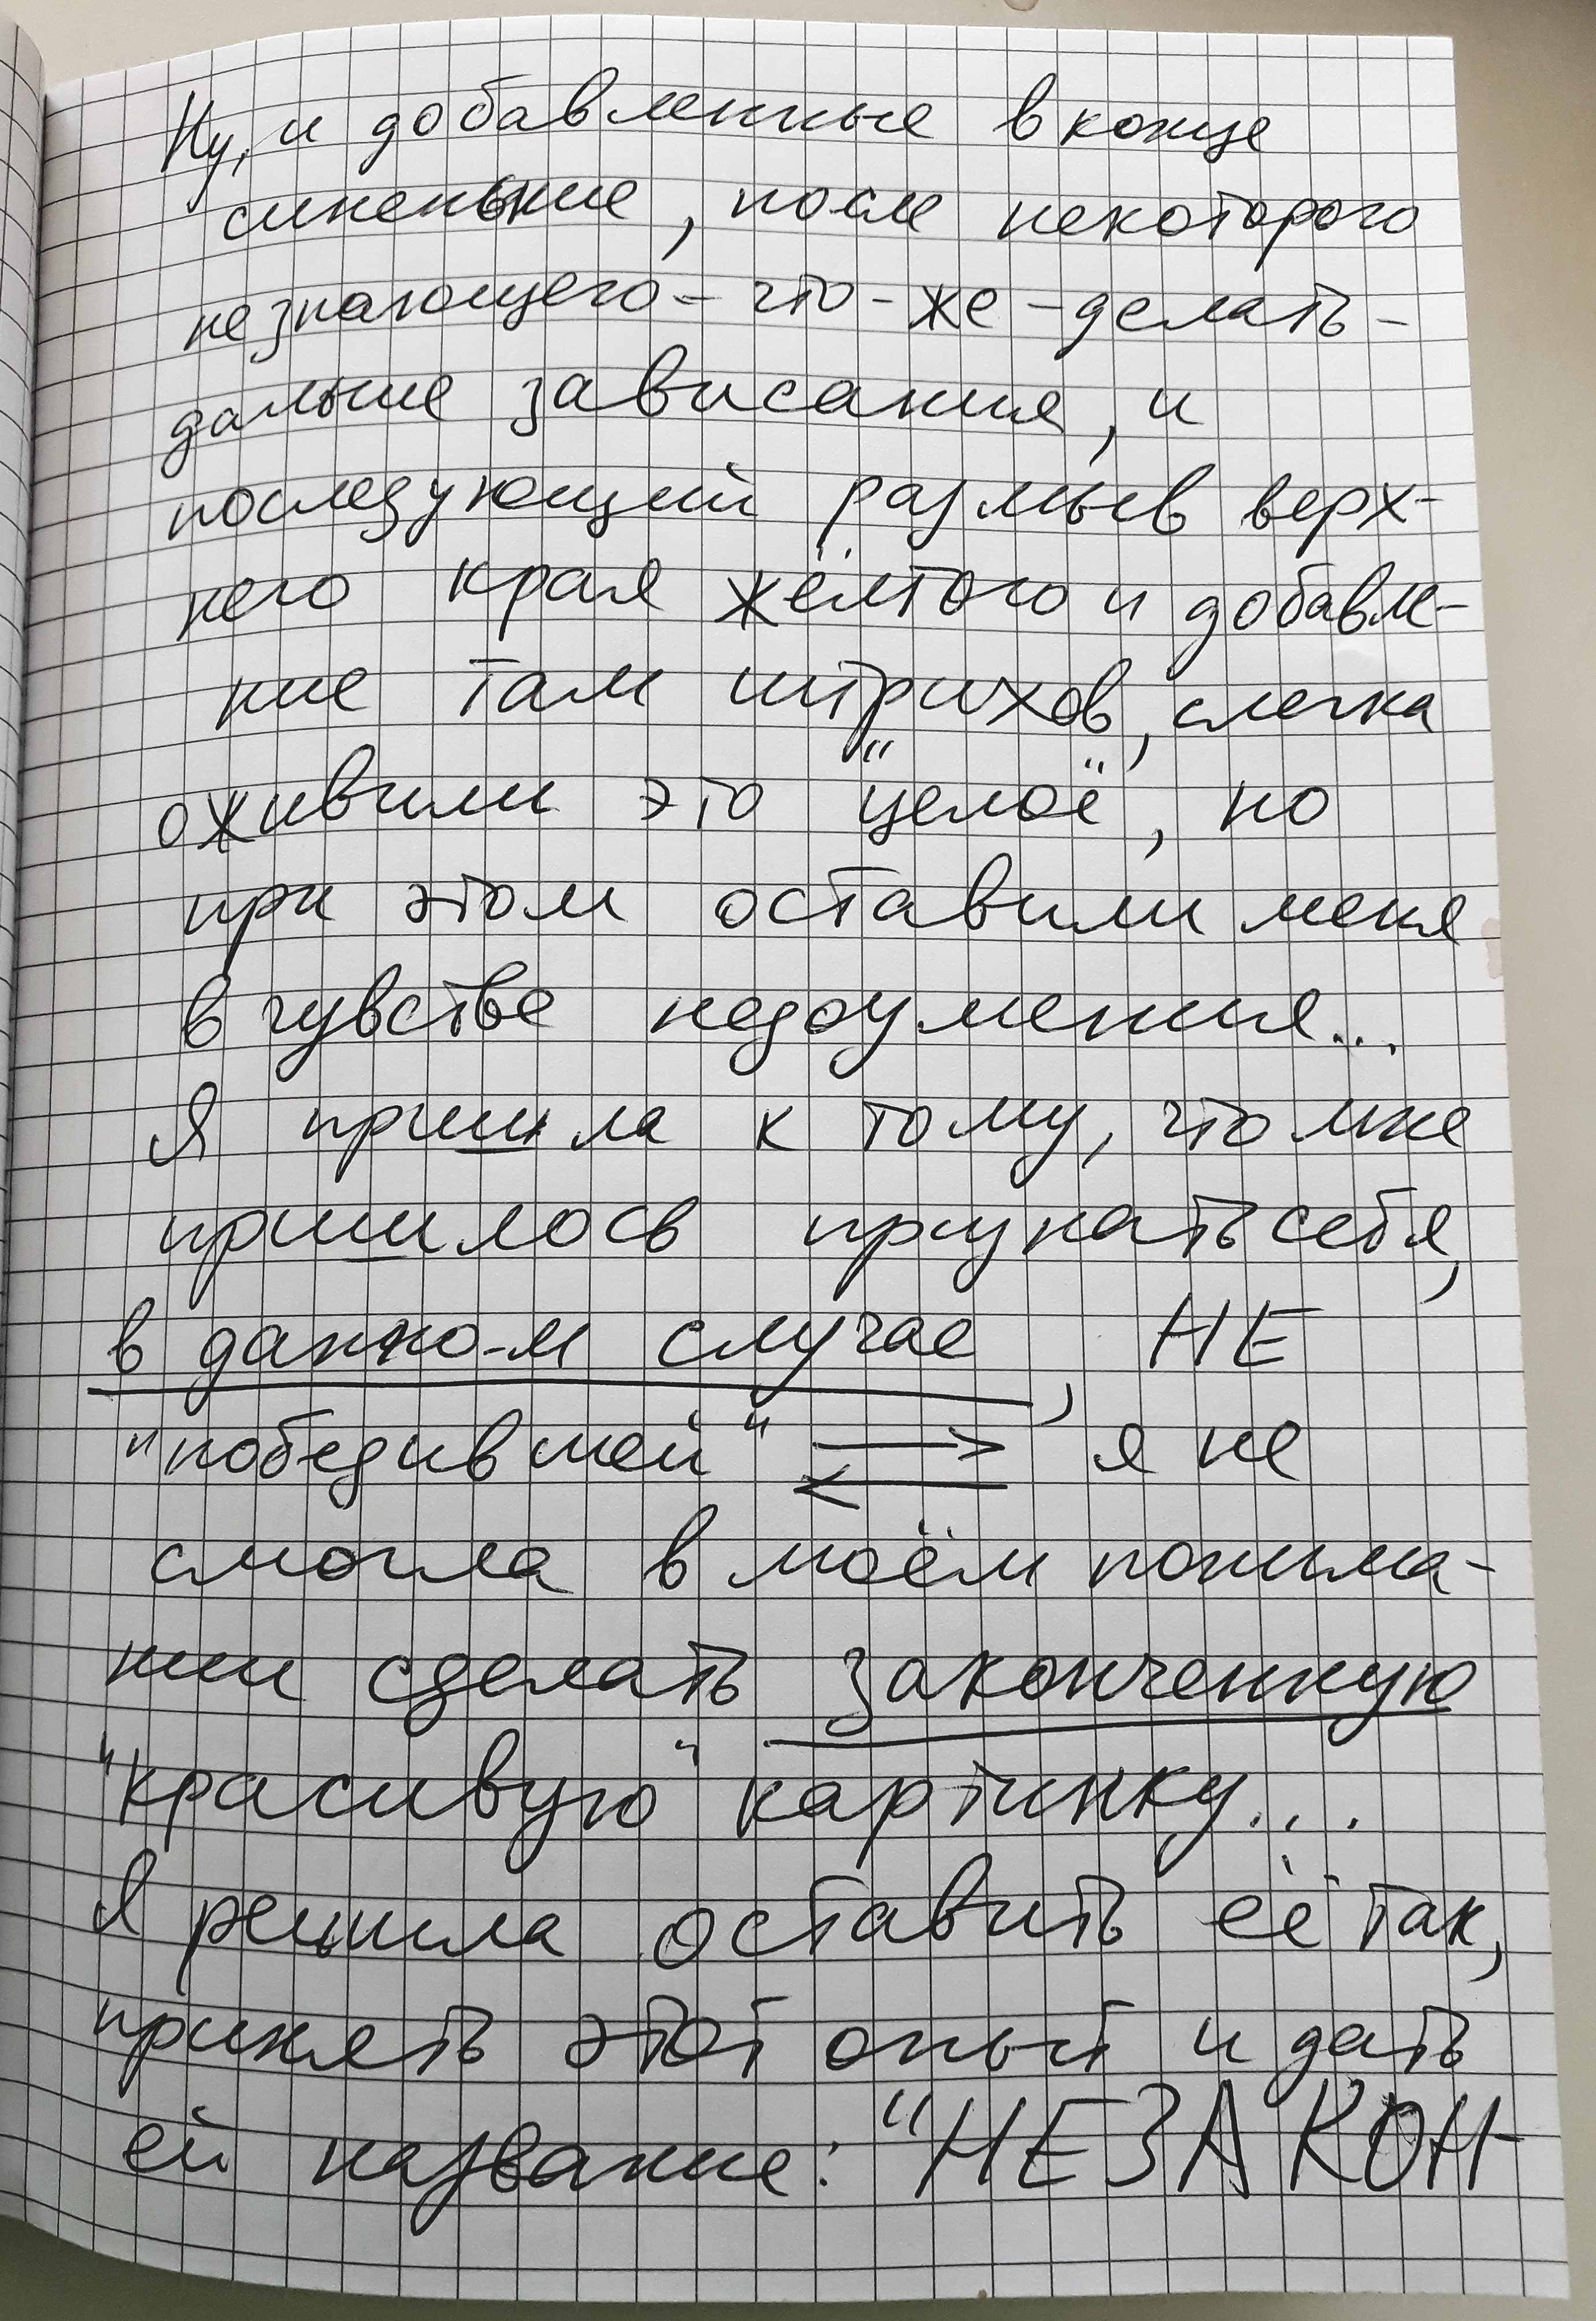 Ну, и добавленные в конце
синенькие, после некоторого
незнающего-что-же-делать-
дальше зависания, и
последующий размыв верх-
него края жёлтого и добавле-
ние там штрихов, слегка
оживили это "целое", но
при этом оставили меня
в чувстве недоумения...
Я пришла к тому, что мне
пришлось признать себя,
в данном случае, НЕ
"победившей" ⇄ я не
смогла в моём понима-
нии сделать законченную
"красивую" картинку...
Я решила оставить её так,
принять этот опыт и дать
ей название: "НЕЗАКОН-